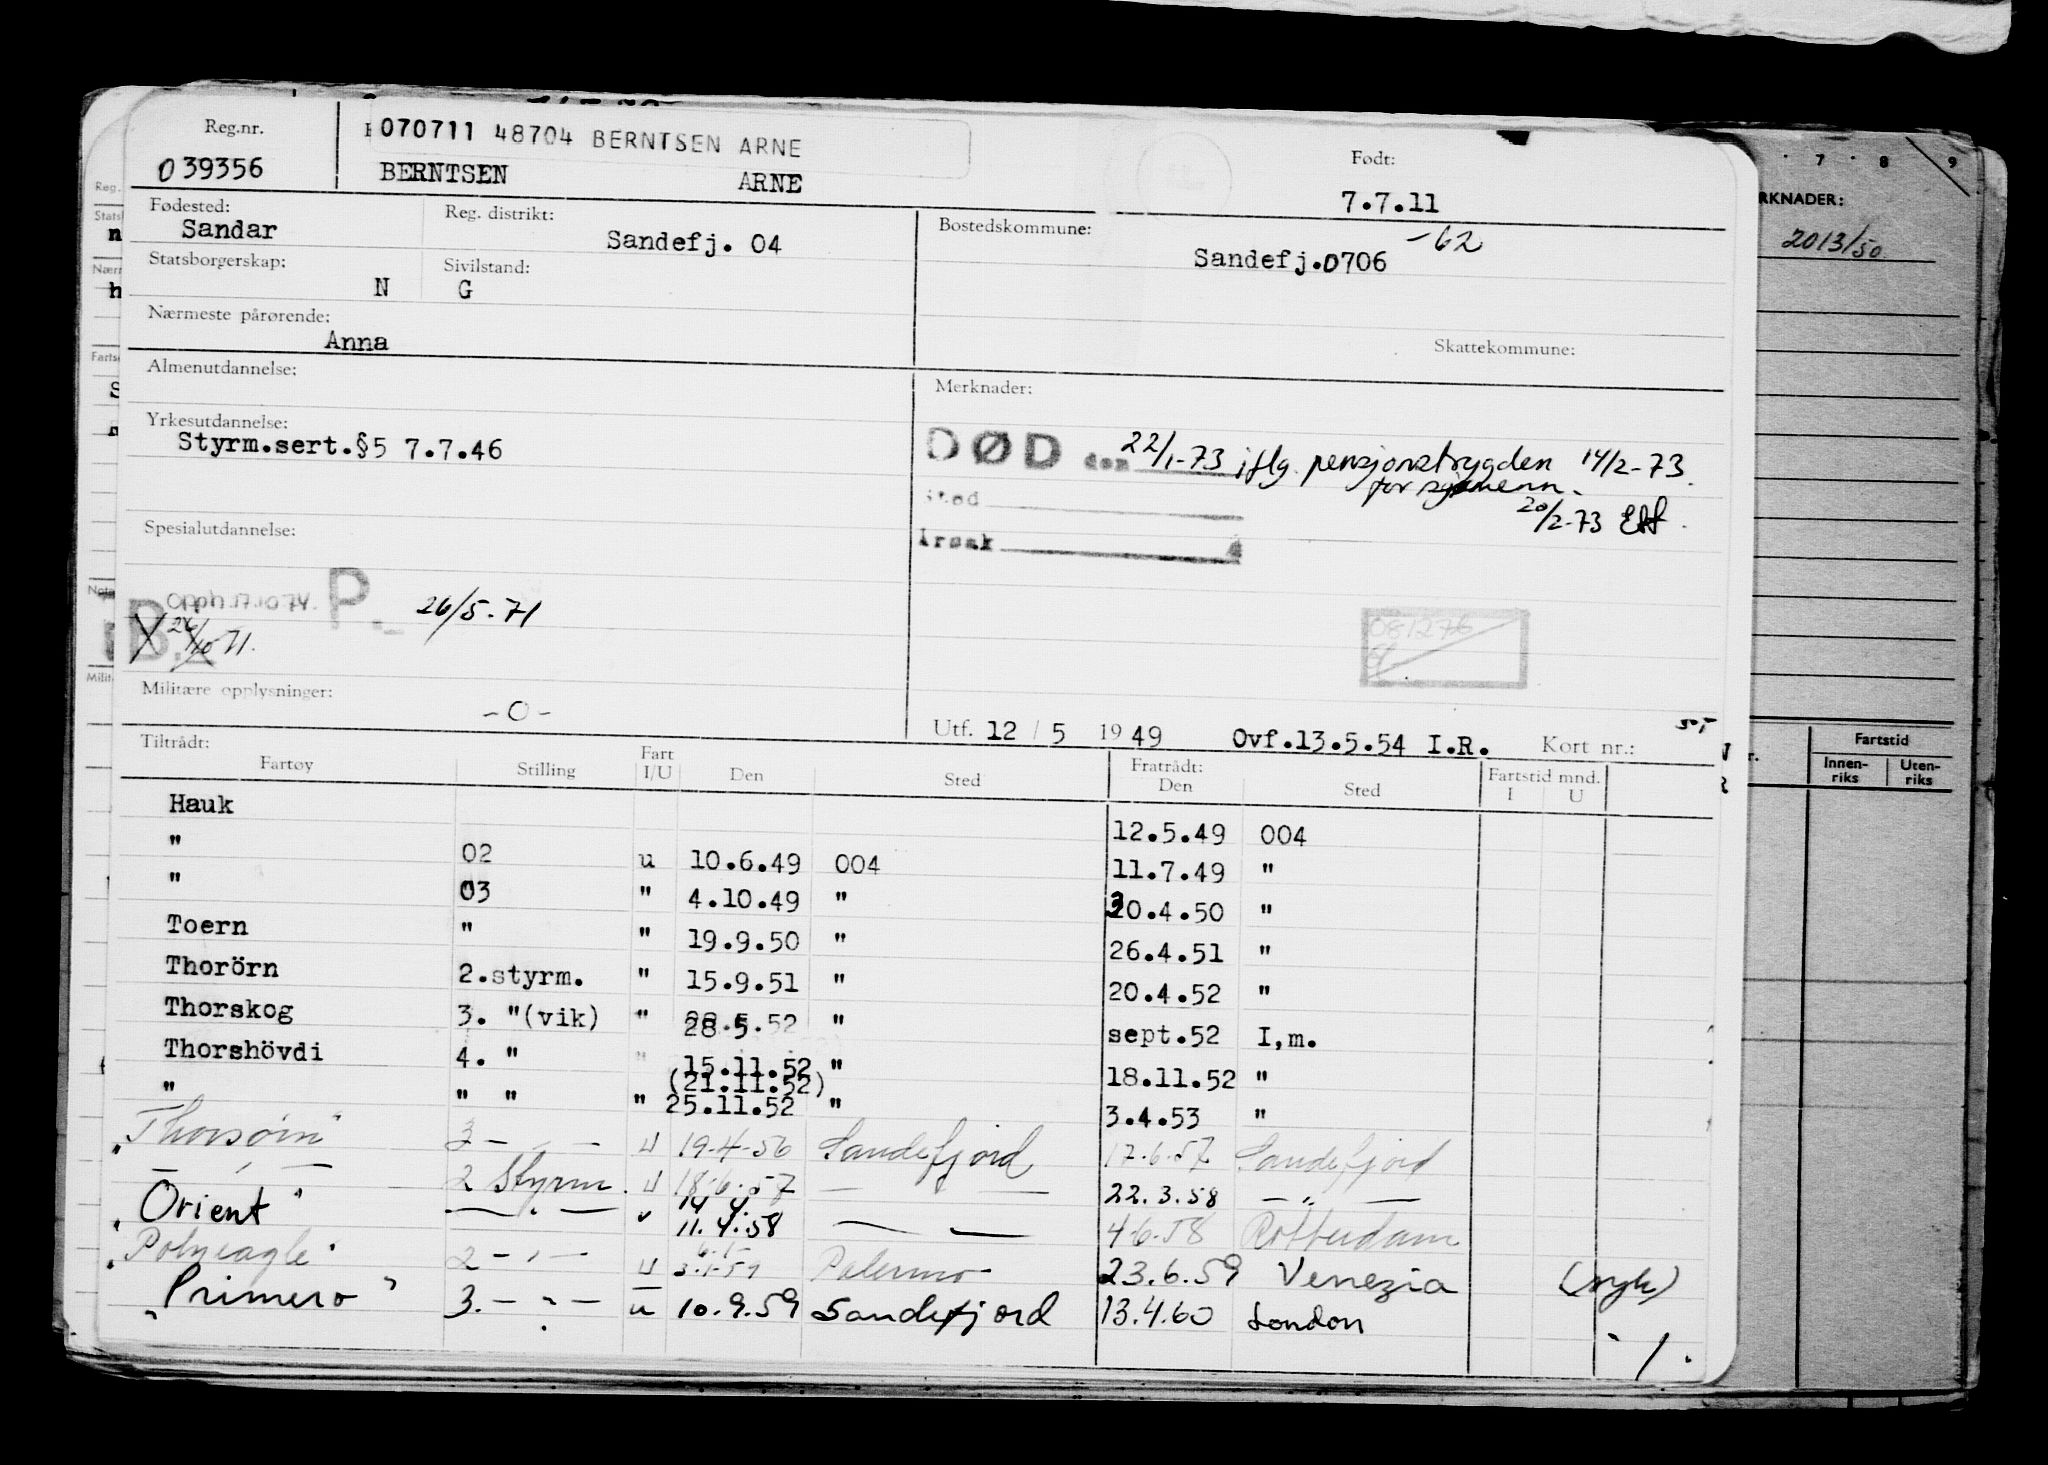 Reg.nr.
039356
070711 48704 BERNTSEN ARNE
BERNTSEN ARNE
Født:
7.7.11
Fødested:
Sandar
Reg. distrikt:
Sandefj. 04
Bostedskommune:
Sandefj.0706 -62
Statsborgerskap:
N
Sivilstand:
G
Nærmeste pårørende:
Anna
Skattekommune:
Almenutdannelse:
Merknader:
Yrkesutdannelse:
Styrm.sert.§5 7.7.46
DØD den 22/1-73 iflg. pensjonstrygden 14/2-73.
for sjømenn.
sted
20/2-73
Årsak
Spesialutdannelse:
Opph.17.10.74. P. 26/5.71
B. 26/10 71.
081276
Militære opplysninger:
-0-
Utf. 12 / 5 1949 Ovf.13.5.54 I.R. Kort nr.:
50,-
Tiltrådt: Fratrådt:
Fartøy Stilling Fart I/U Den Sted Den Sted Fartstid mnd. I U
Hauk 12.5.49 004
" 02 u 10.6.49 004 11.7.49 "
" 03 " 4.10.49 " 30.4.50 "
Toern " " 19.9.50 " 26.4.51 "
Thorörn 2.styrm. " 15.9.51 " 20.4.52 "
Thorskog 3. "(vik) " 28.5.52 " sept.52 I,m.
Thorshövdi 4. " " 15.11.52 " 18.11.52 "
(21.11.52)
" " " " 25.11.52 " 3.4.53 "
"Thorsørn" 3 - " - u 19-4-56 Sandefjord 17.6.57 Sandefjord
- " - 2 Styrm. u 18-6-57 - - 22.3.58 - " -
"Orient" - " - 11.4.58 - - 4-6-58 Rotterdam
"Polyeagle" 2 - " - u 3.1-59 Palermo 23.6.59 Venezia (syk)
"Primero" 3. - " - u 10.9.59 Sandefjord 13.4.60 London
RKNADER:
2013/50
7 8 9
Fartstid
Innen-
riks
Uten-
riks